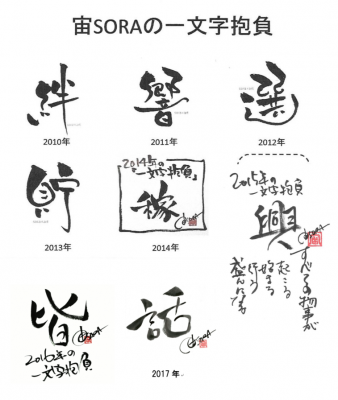 宙SORAの一文字抱負
絆
響
選
2010年
2011年
2012年
貯
2014年の
一文字抱負
稼
2015年の
一文字抱負
興
すべての物事が
起こる
始まる
行う
盛んになる
2013年
2014年
皆
2016年の
一文字抱負
話
2017年